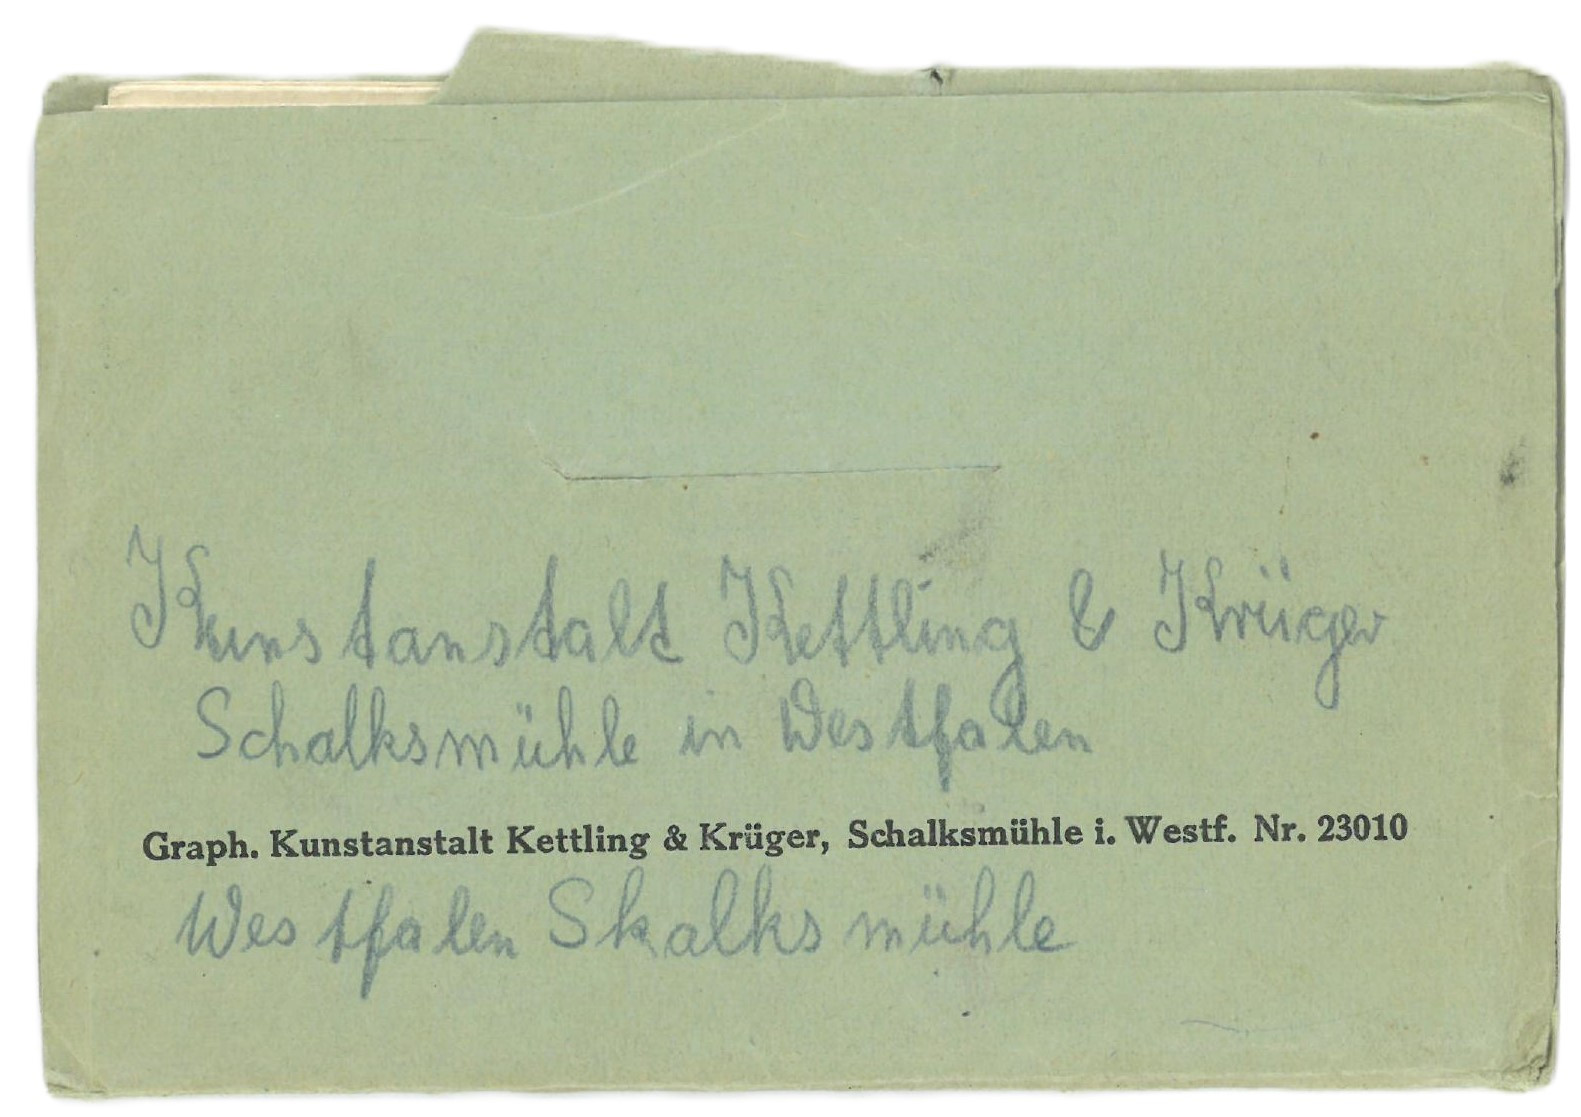 Kunstanstalt Kettling & Krüger
Schalksmühle in Westfalen
Graph. Kunstanstalt Kettling & Krüger, Schalksmühle i. Westf. Nr. 23010
Westfalen Skalksmühle